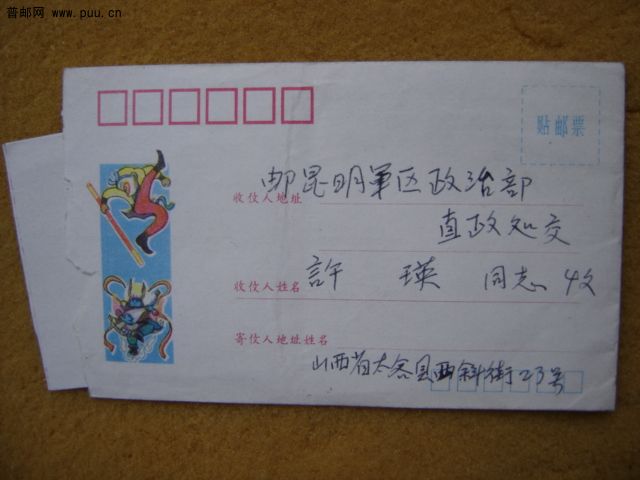 普邮网 www.puu.cn
贴邮票
邮昆明军区政治部
收伩人地址
直政处交
收伩人姓名 許 瑛 同志 收
寄伩人地址姓名
山西省太谷县西斜街23号